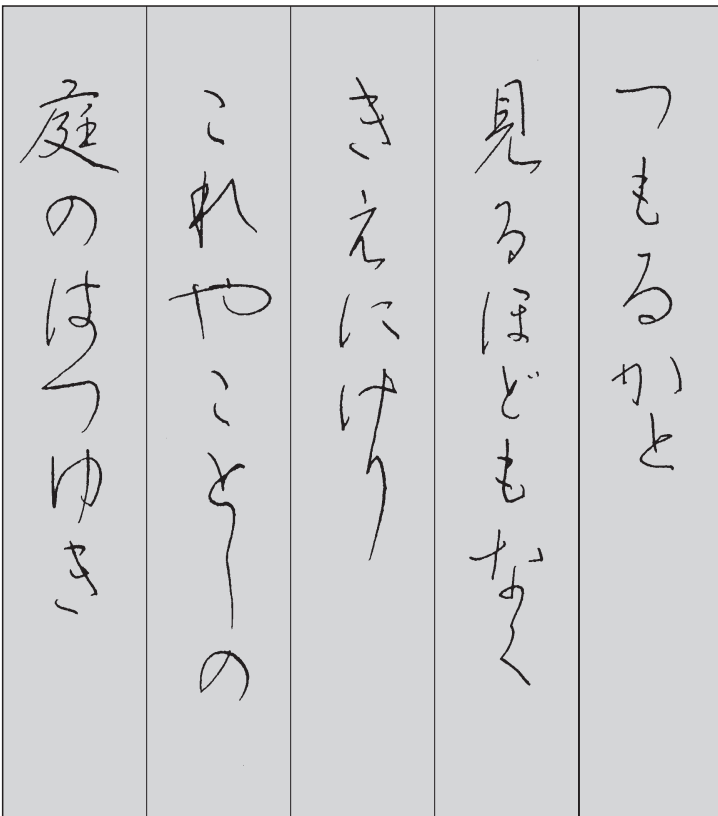 つもるかと
見るほどもなく
きえにけり
これやことしの
庭のはつゆき